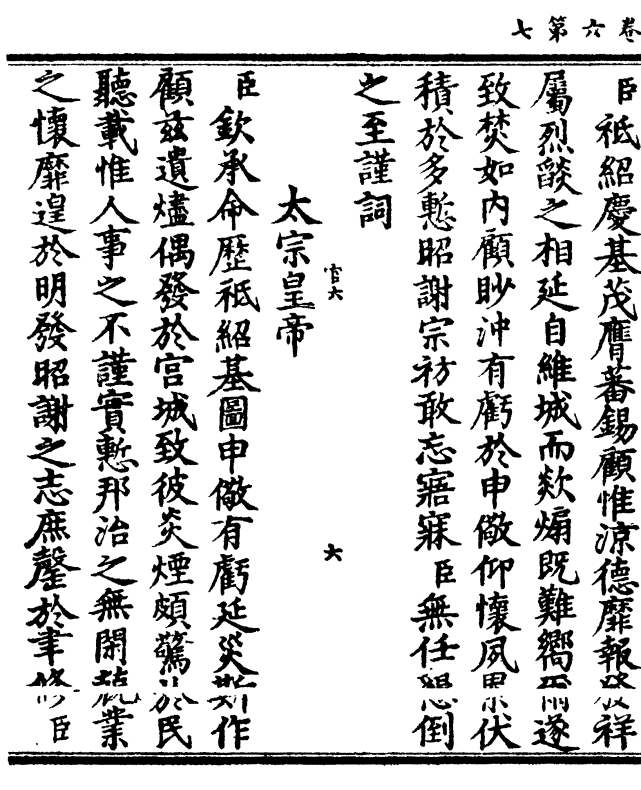 卷六第七
臣祗紹慶基茂膺蕃錫顧惟涼德靡報發祥
屬烈燄之相延自維城而欻煽既難嚮邇遂
致焚如内顧眇沖有虧於申儆仰懷夙伏
積於多慙昭謝宗祊敢忘寤寐臣無任懇倒
之至謹詞
官六
六
太宗皇帝
臣欽承命歷祗紹基圖申儆有虧延災斯作
顧茲遺燼偶發於宮城致彼炎煙頗驚於民
聽載惟人事之不謹實慙邦治之無閑兢業
之懷靡遑於明發昭謝之志庶罄於聿修臣